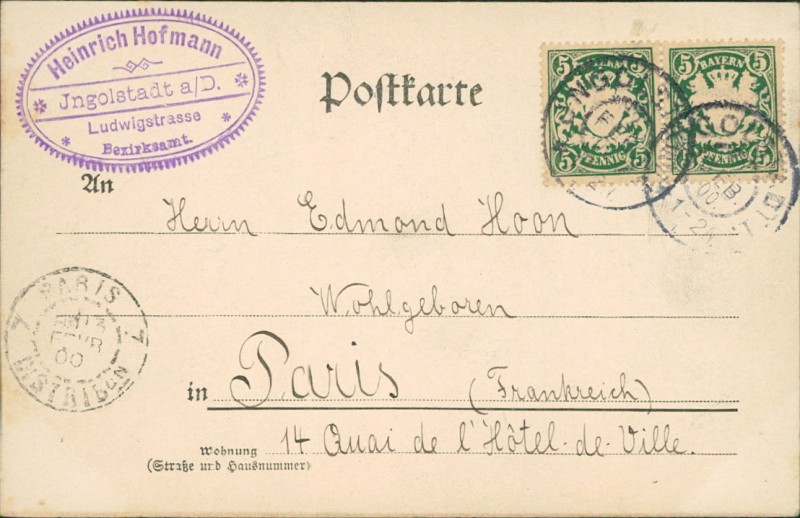 Heinrich Hofmann
Jngolstadt a/D.
Ludwigstrasse
Bezirksamt.
Postkarte
5 5
5 PFENNIG 5
5 BAYERN 5
5 PFENNIG 5
An
Herrn Edmond Hoon
Wohlgeboren
in Paris (Frankreich)
Wohnung
(Straße und Hausnummer)
14 Quai de l'Hôtel-de-Ville.
PARIS
7 7
FEVR
00
DISTRIBON